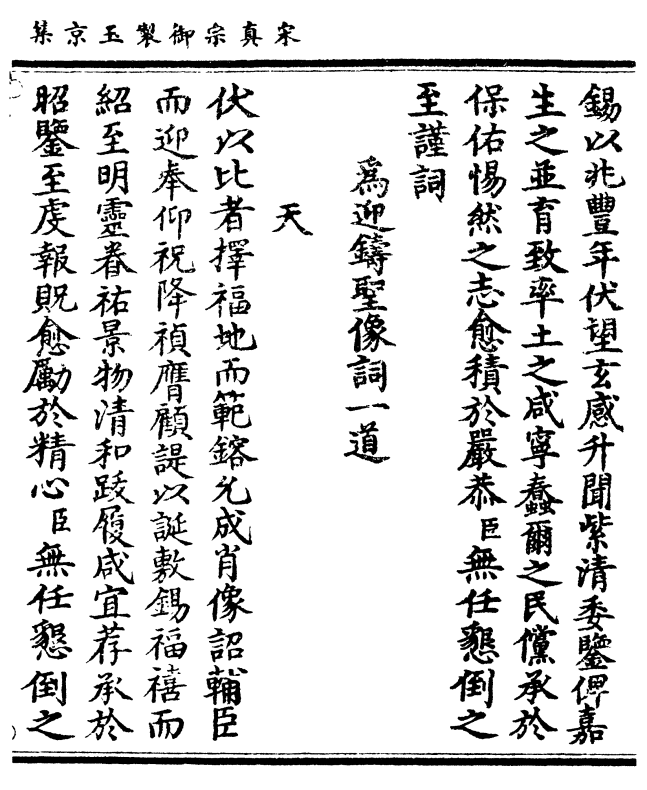 宋真宗御製玉京集
錫以兆豐年伏望玄感升聞紫清委鑒俾嘉
生之並育致率土之咸寧蠢爾之民儻承於
保佑惕然之志愈積於嚴恭臣無任懇倒之
至謹詞
為迎鑄聖像詞一道
天
伏以比者擇福地而範鎔允成肖像詔輔臣
而迎奉仰祝降禎膺顧諟以誕敷錫福禧而
紹至明靈眷祐景物清和踐履咸宜荐承於
昭鑒至虔報貺愈勵於精心臣無任懇倒之